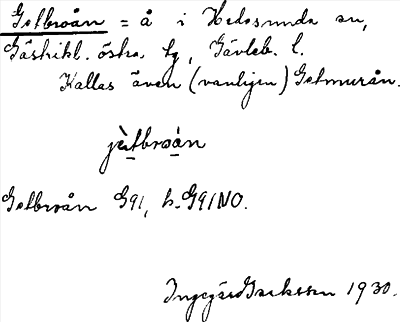 Getbroån = å i Hedesunda sn,
Gästrikl. östra tg, Gävleb. l.
Kallas även (vanligen) Getmurån.
jètbroán
Getbroån G91, h. G91NO.
Ingegärd 1930.